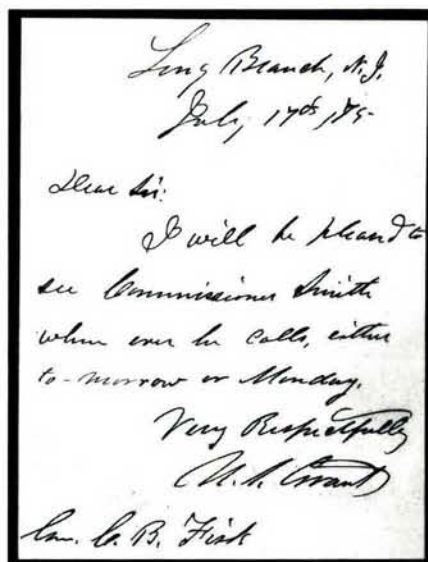 Long Branch, N.J.
July 17th /75
Dear Sir:
I will be pleased to
see Commissioner Smith
when ever he calls, either
to-morrow or Monday.
Very Respectfully
U. S. Grant
Gen. C. B. Fisk